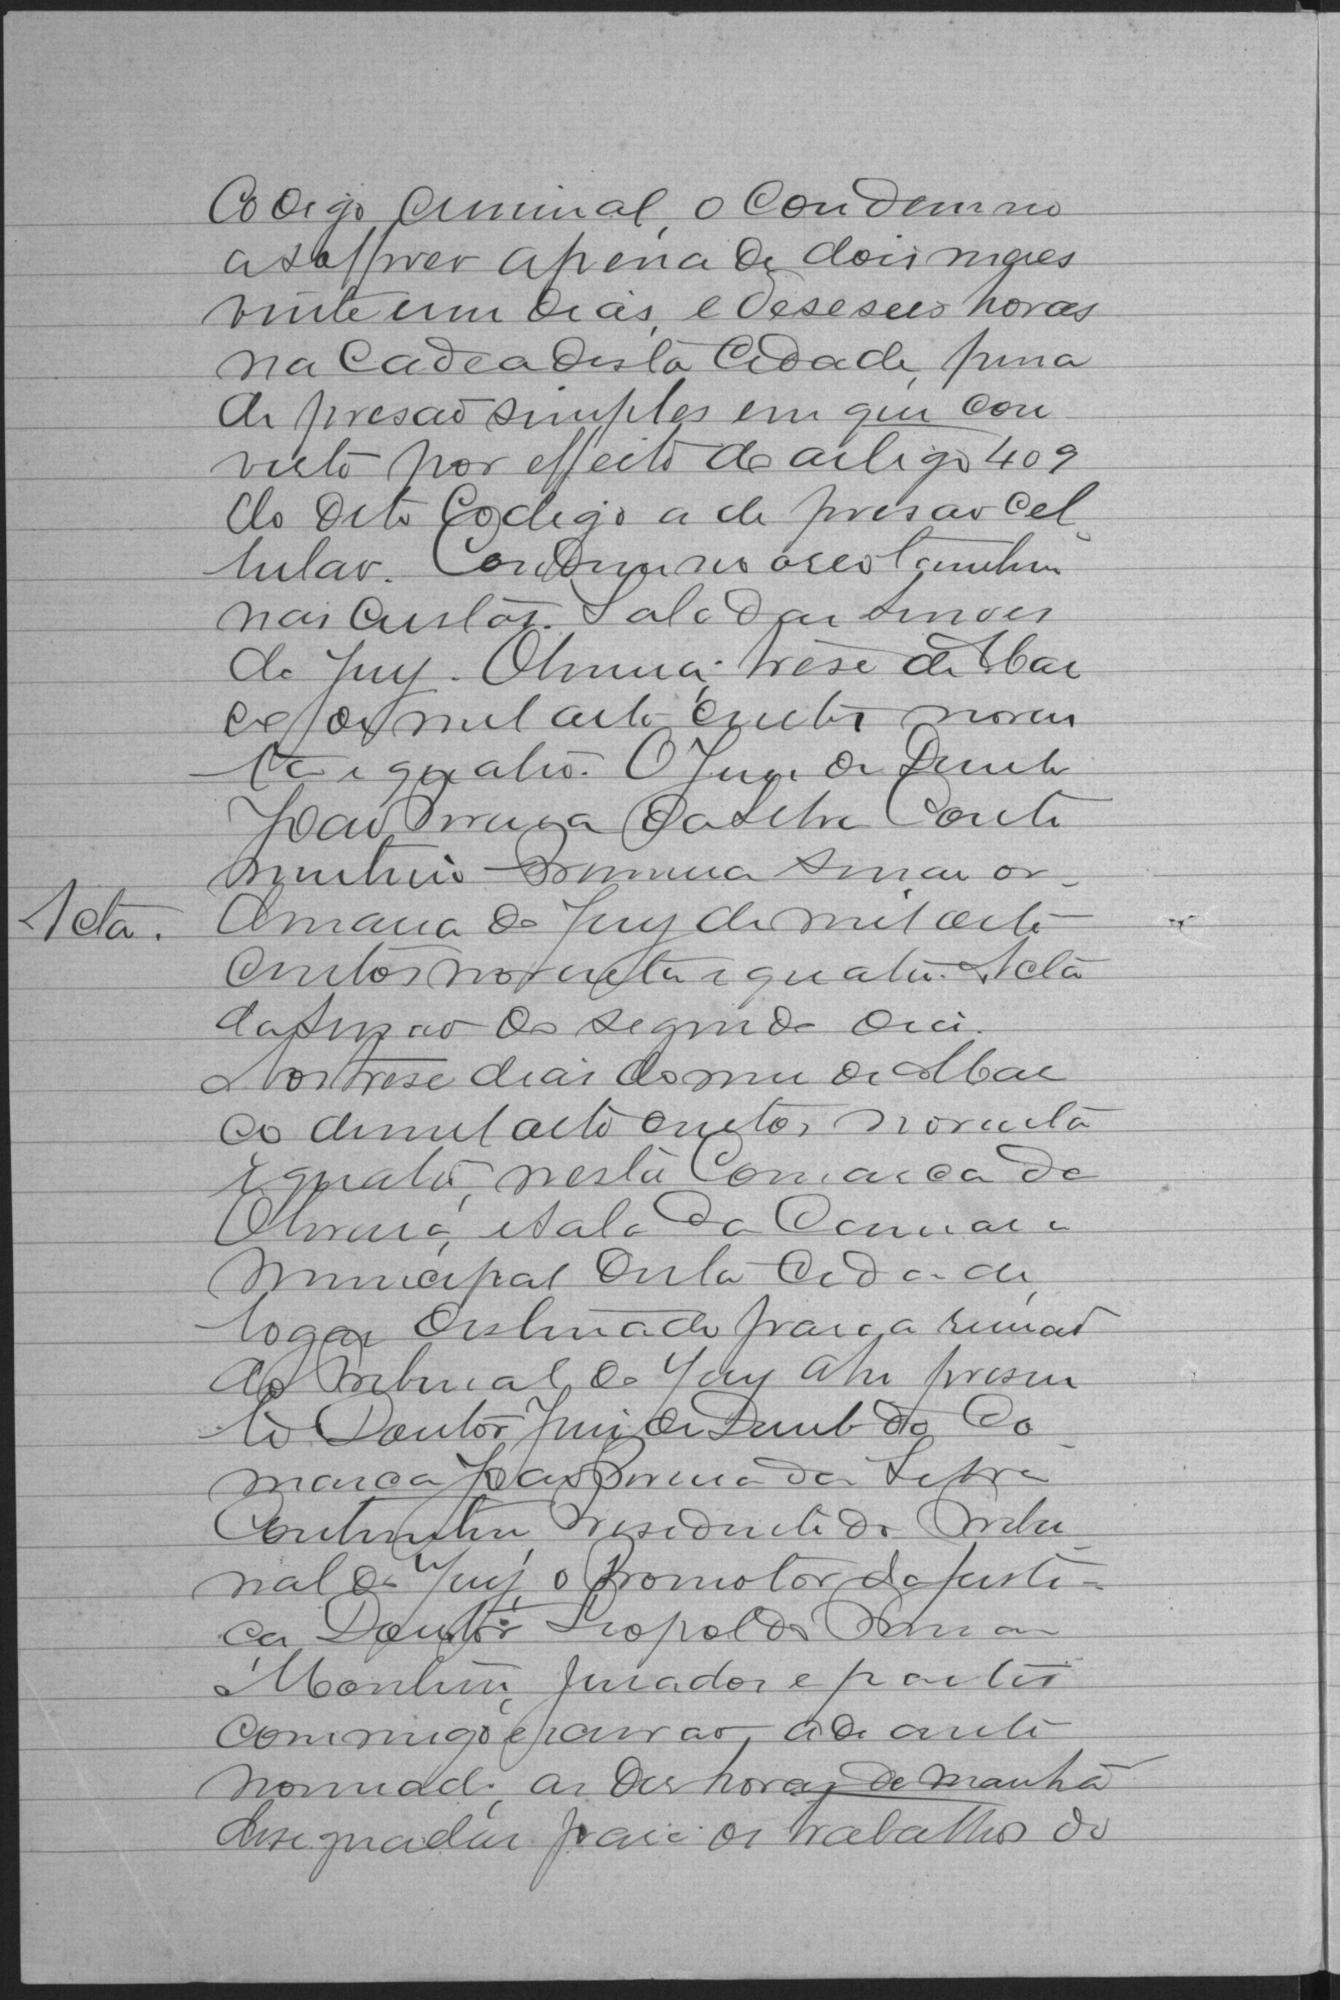 Codigo Criminal, o condemno
a soffrer a pena de dois meses
vinte um dias, e deseseis horas
na Cadea desta Cidade, pena
de presaõ simples em que con
verto por effeito do artigo 409
do dito Codigo a de prisao Cel
lular. Condemno o reo tambem
nas custas. Sala das Sessoes
do Jury. Oliveira, trese de Mar
ço de mil oito centos noven
ta e quatro. O Juiz de Direito
Joaõ Pereira da Silva Conti
nentino Primeira Sessaõ or
Acta. dinaria do Jury de mil oito
centos noventa e quatro. Acta
da Sessaõ do segundo dia.
Aos trese dias do mez de Mar
ço de mil oito centos noventa
e quatro, nesta Comarca de
Oliveira, e sala da Camara
Municipal desta Cidade,
logar destinado para a reuniaõ
do Tribunal do Jury ahi presen
te o Doutor Juiz de Direito da Co
marca Joaõ Pereira da Silva
Continentino, Presidente do Tribu
nal do Jury, o Promotor da Justi-
ça Doutor Leopoldo
Monteiro, Jurados e partes
commigo escrivaõ, adeante
nomeado, as des horas da manhã
designadas para os trabalhos do